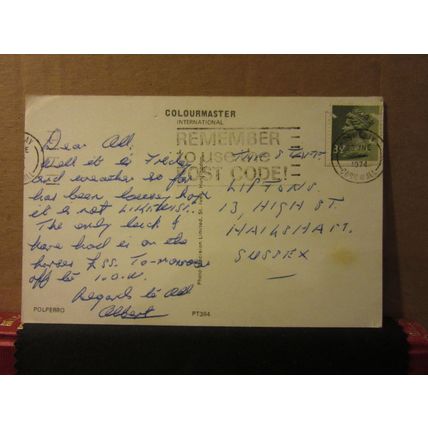 COLOURMASTER
INTERNATIONAL
REMEMBER
to use the
POST CODE!
1974
Dear All.
Well it is Friday
and weather so far
has been lousey
it is not
The only luck I
have had is on the
horses £55. To-morrow
off to I.O.W.
Regards to All
Albert
THE STAFF
LIPTONS.
13, HIGH ST.
HAILSHAM.
SUSSEX
Photo Precision Limited, St. Ives,
POLPERRO
PT364